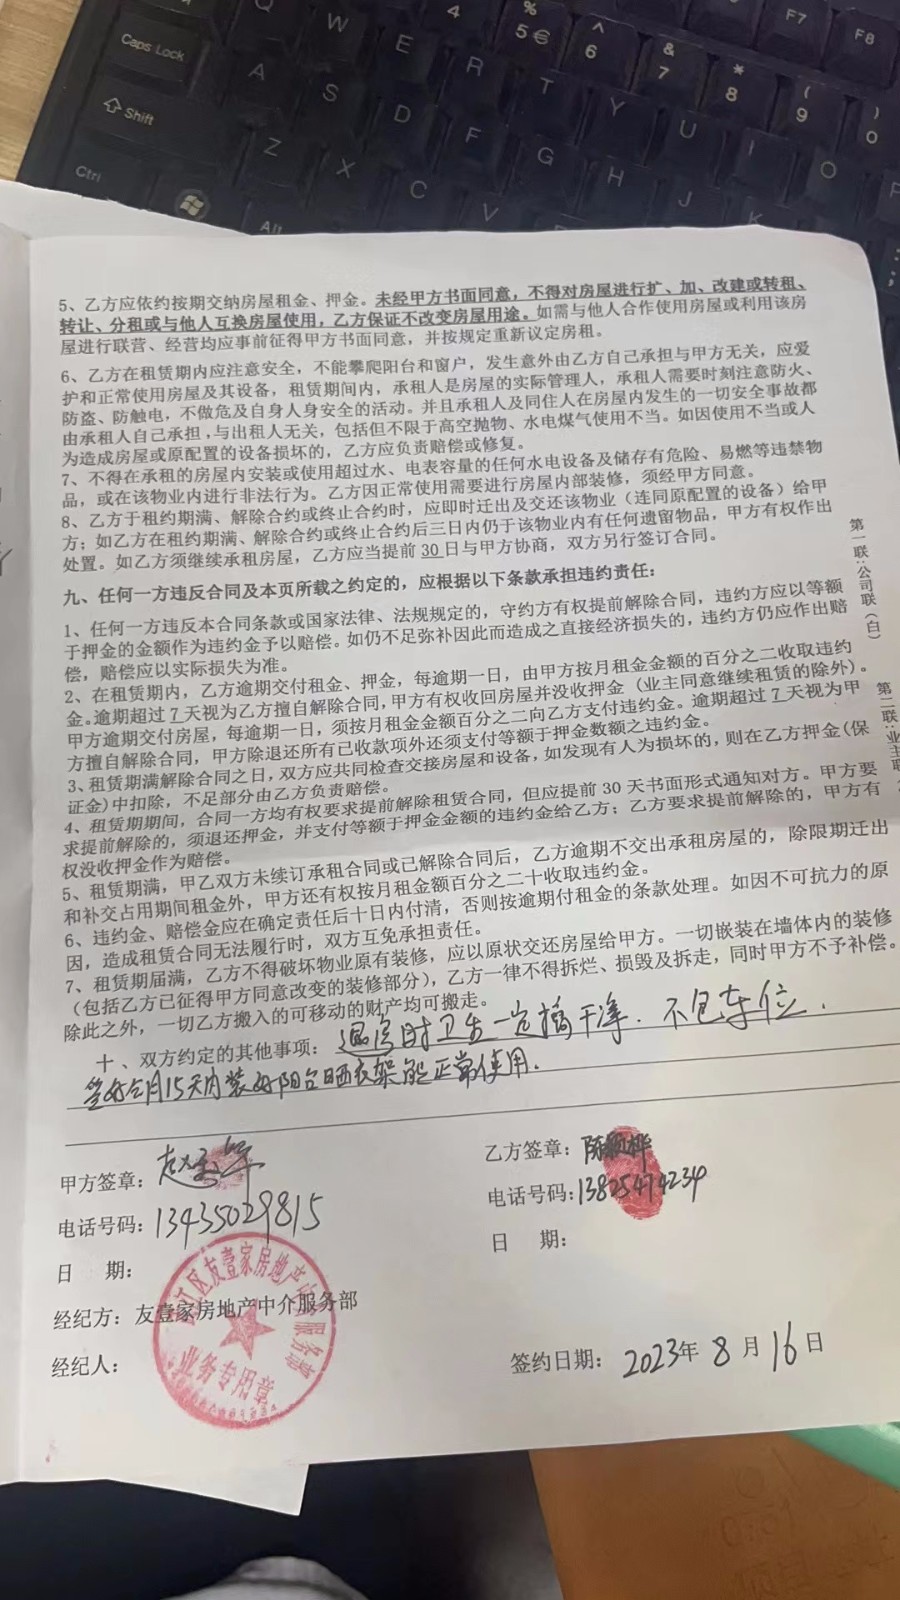 Q W E R T Y U I O P
4 % 5 € ^ 6 & 7 * 8 ( 9 ) 0 F7 F8
Caps Lock A S D F G H J K
Shift Z X C V
Ctrl Alt
5、乙方应依约按期交纳房屋租金、押金。未经甲方书面同意，不得对房屋进行扩、加、改建或转租、
转让、分租或与他人互换房屋使用，乙方保证不改变房屋用途。如需与他人合作使用房屋或利用该房
屋进行联营、经营均应事前征得甲方书面同意，并按规定重新议定房租。
6、乙方在租赁期内应注意安全，不能攀爬阳台和窗户，发生意外由乙方自己承担与甲方无关，应爱
护和正常使用房屋及其设备，租赁期间内，承租人是房屋的实际管理人，承租人需要时刻注意防火、
防盗、防触电，不做危及自身人身安全的活动。并且承租人及同住人在房屋内发生的一切安全事故都
由承租人自己承担，与出租人无关，包括但不限于高空抛物、水电煤气使用不当。如因使用不当或人
为造成房屋或原配置的设备损坏的，乙方应负责赔偿或修复。
7、不得在承租的房屋内安装或使用超过水、电表容量的任何水电设备及储存有危险、易燃等违禁物
品，或在该物业内进行非法行为。乙方因正常使用需要进行房屋内部装修，须经甲方同意。
8、乙方于租约期满、解除合约或终止合约时，应即时迁出及交还该物业（连同原配置的设备）给甲
方；如乙方在租约期满、解除合约或终止合约后三日内仍于该物业内有任何遗留物品，甲方有权作出
处置。如乙方须继续承租房屋，乙方应当提前30日与甲方协商，双方另行签订合同。
九、任何一方违反合同及本页所载之约定的，应根据以下条款承担违约责任：
1、任何一方违反本合同条款或国家法律、法规规定的，守约方有权提前解除合同，违约方应以等额
于押金的金额作为违约金予以赔偿。如仍不足弥补因此而造成之直接经济损失的，违约方仍应作出赔
偿，赔偿应以实际损失为准。
2、在租赁期内，乙方逾期交付租金、押金，每逾期一日，由甲方按月租金金额的百分之二收取违约
金。逾期超过7天视为乙方擅自解除合同，甲方有权收回房屋并没收押金（业主同意继续租赁的除外）。
甲方逾期交付房屋，每逾期一日，须按月租金金额百分之二向乙方支付违约金。逾期超过7天视为甲
方擅自解除合同，甲方除退还所有已收款项外还须支付等额于押金数额之违约金。
3、租赁期满解除合同之日，双方应共同检查交接房屋和设备，如发现有人为损坏的，则在乙方押金(保
证金)中扣除，不足部分由乙方负责赔偿。
4、租赁期期间，合同一方均有权要求提前解除租赁合同，但应提前30天书面形式通知对方。甲方要
求提前解除的，须退还押金，并支付等额于押金金额的违约金给乙方；乙方要求提前解除的，甲方有
权没收押金作为赔偿。
5、租赁期满，甲乙双方未续订承租合同或已解除合同后，乙方逾期不交出承租房屋的，除限期迁出
和补交占用期间租金外，甲方还有权按月租金额百分之二十收取违约金。
6、违约金、赔偿金应在确定责任后十日内付清，否则按逾期付租金的条款处理。如因不可抗力的原
因，造成租赁合同无法履行时，双方互免承担责任。
7、租赁期届满，乙方不得破坏物业原有装修，应以原状交还房屋给甲方。一切嵌装在墙体内的装修
（包括乙方已征得甲方同意改变的装修部分），乙方一律不得拆烂、损毁及拆走，同时甲方不予补偿。
除此之外，一切乙方搬入的可移动的财产均可搬走。
十、双方约定的其他事项：退房时卫生一定搞干净．不包车位．
签好合同15天内装好阳台晒衣架能正常使用．
第一联：公司联（白）
第二联：业主联
甲方签章：
乙方签章：陈颖桦
电话号码：13435029815
电话号码：13825474234
日 期：
日 期：
经纪方：友壹家房地产中介服务部
经纪人：
签约日期：2023年8月16日
江区友壹家房地产中介服务部
业务专用章